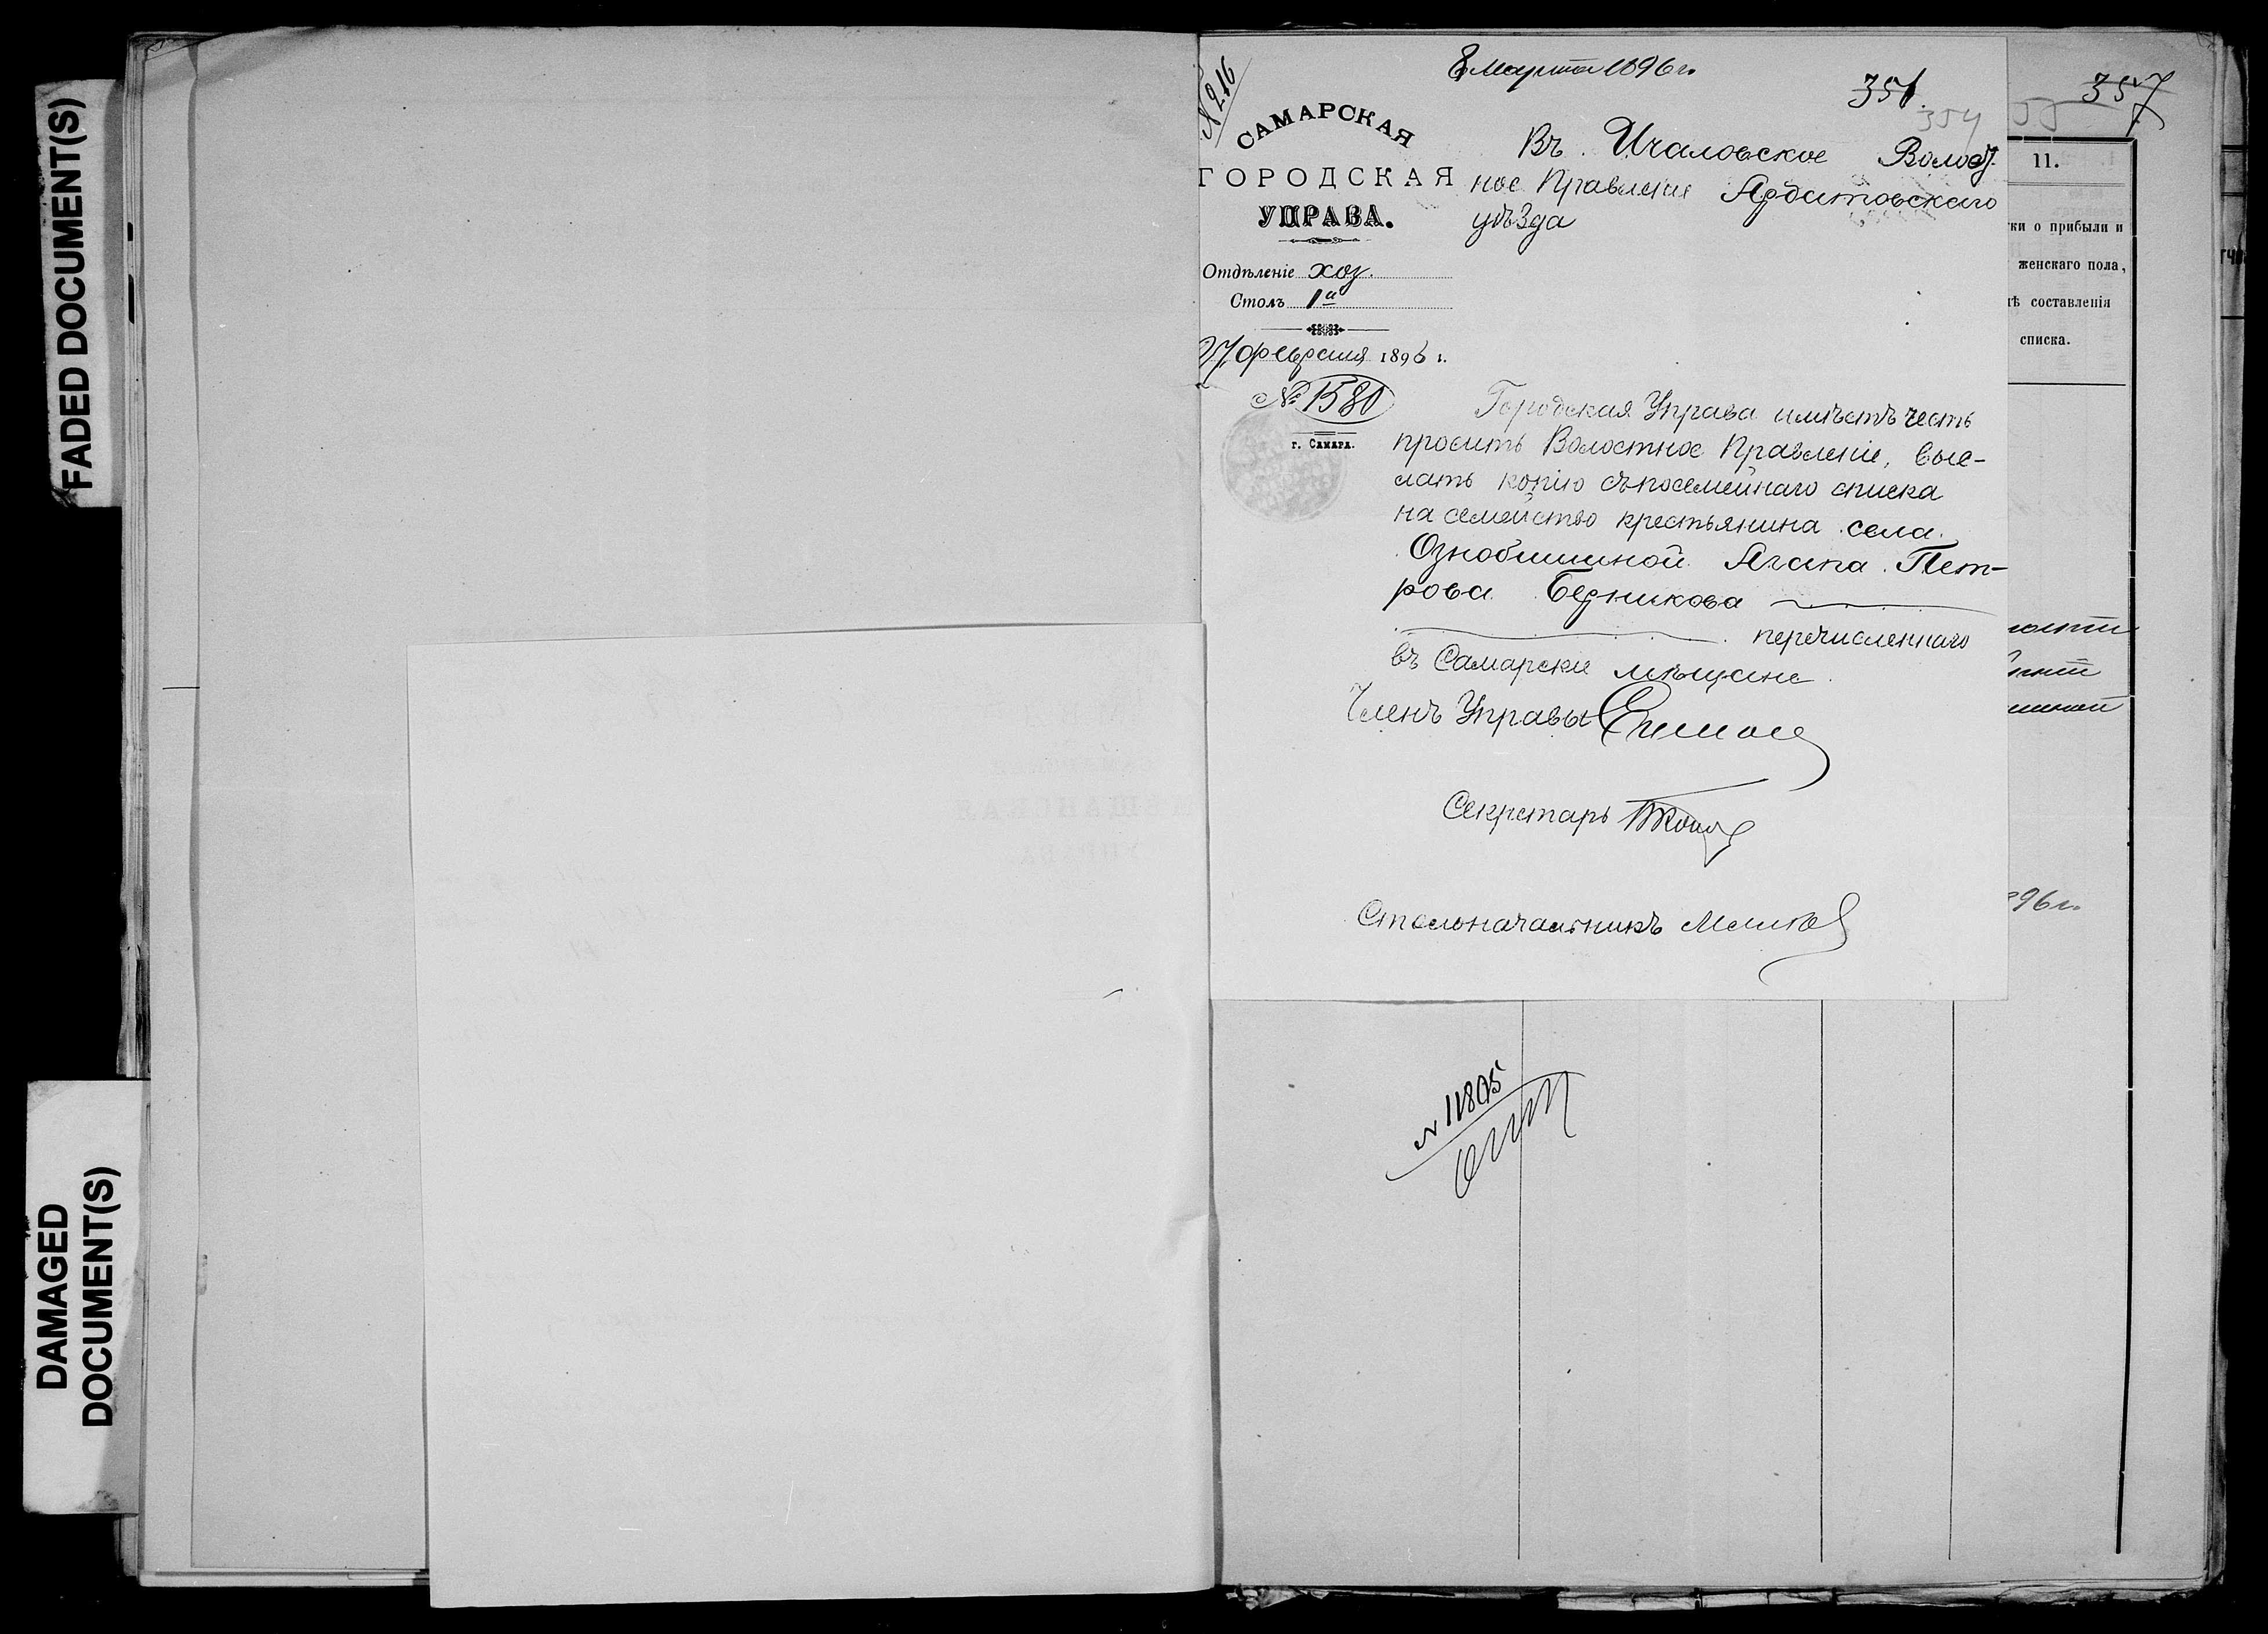 FADED DOCUMENT(S)
DAMAGED
DOCUMENT(S)
8 Марта 1896 г.
№ 216
351.
354
357
САМАРСКАЯ
ГОРОДСКАЯ
УПРАВА.
Отдѣленіе хоз.
Столъ 1й
27 февраля 1896 г.
№ 1580
г. Самара.
Въ Ичаловское Волост-
ное Правленіе Ардатовскаго
уѣзда
Городская Управа имѣетъ честь
просить Волостное Правленіе, выс-
лать копію съ посемейнаго списка
на семейство крестьянина села
Ознобишиной Агапа Пет-
рова Бедникова
перечисленнаго
въ Самарскіе мѣщане.
Членъ Управы
Секретарь
Столоначальникъ
11.
ки о прибыли и
женскаго пола,
ѣ составленія
списка.
96 г.
№ 11805